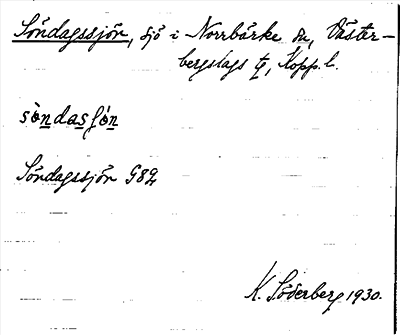 Söndagssjön, sjö i Norrbärke sn, Väster-
bergslags tg, Kopp. l.
sòndasʃön
Söndagssjön G82
K. Söderberg 1930.